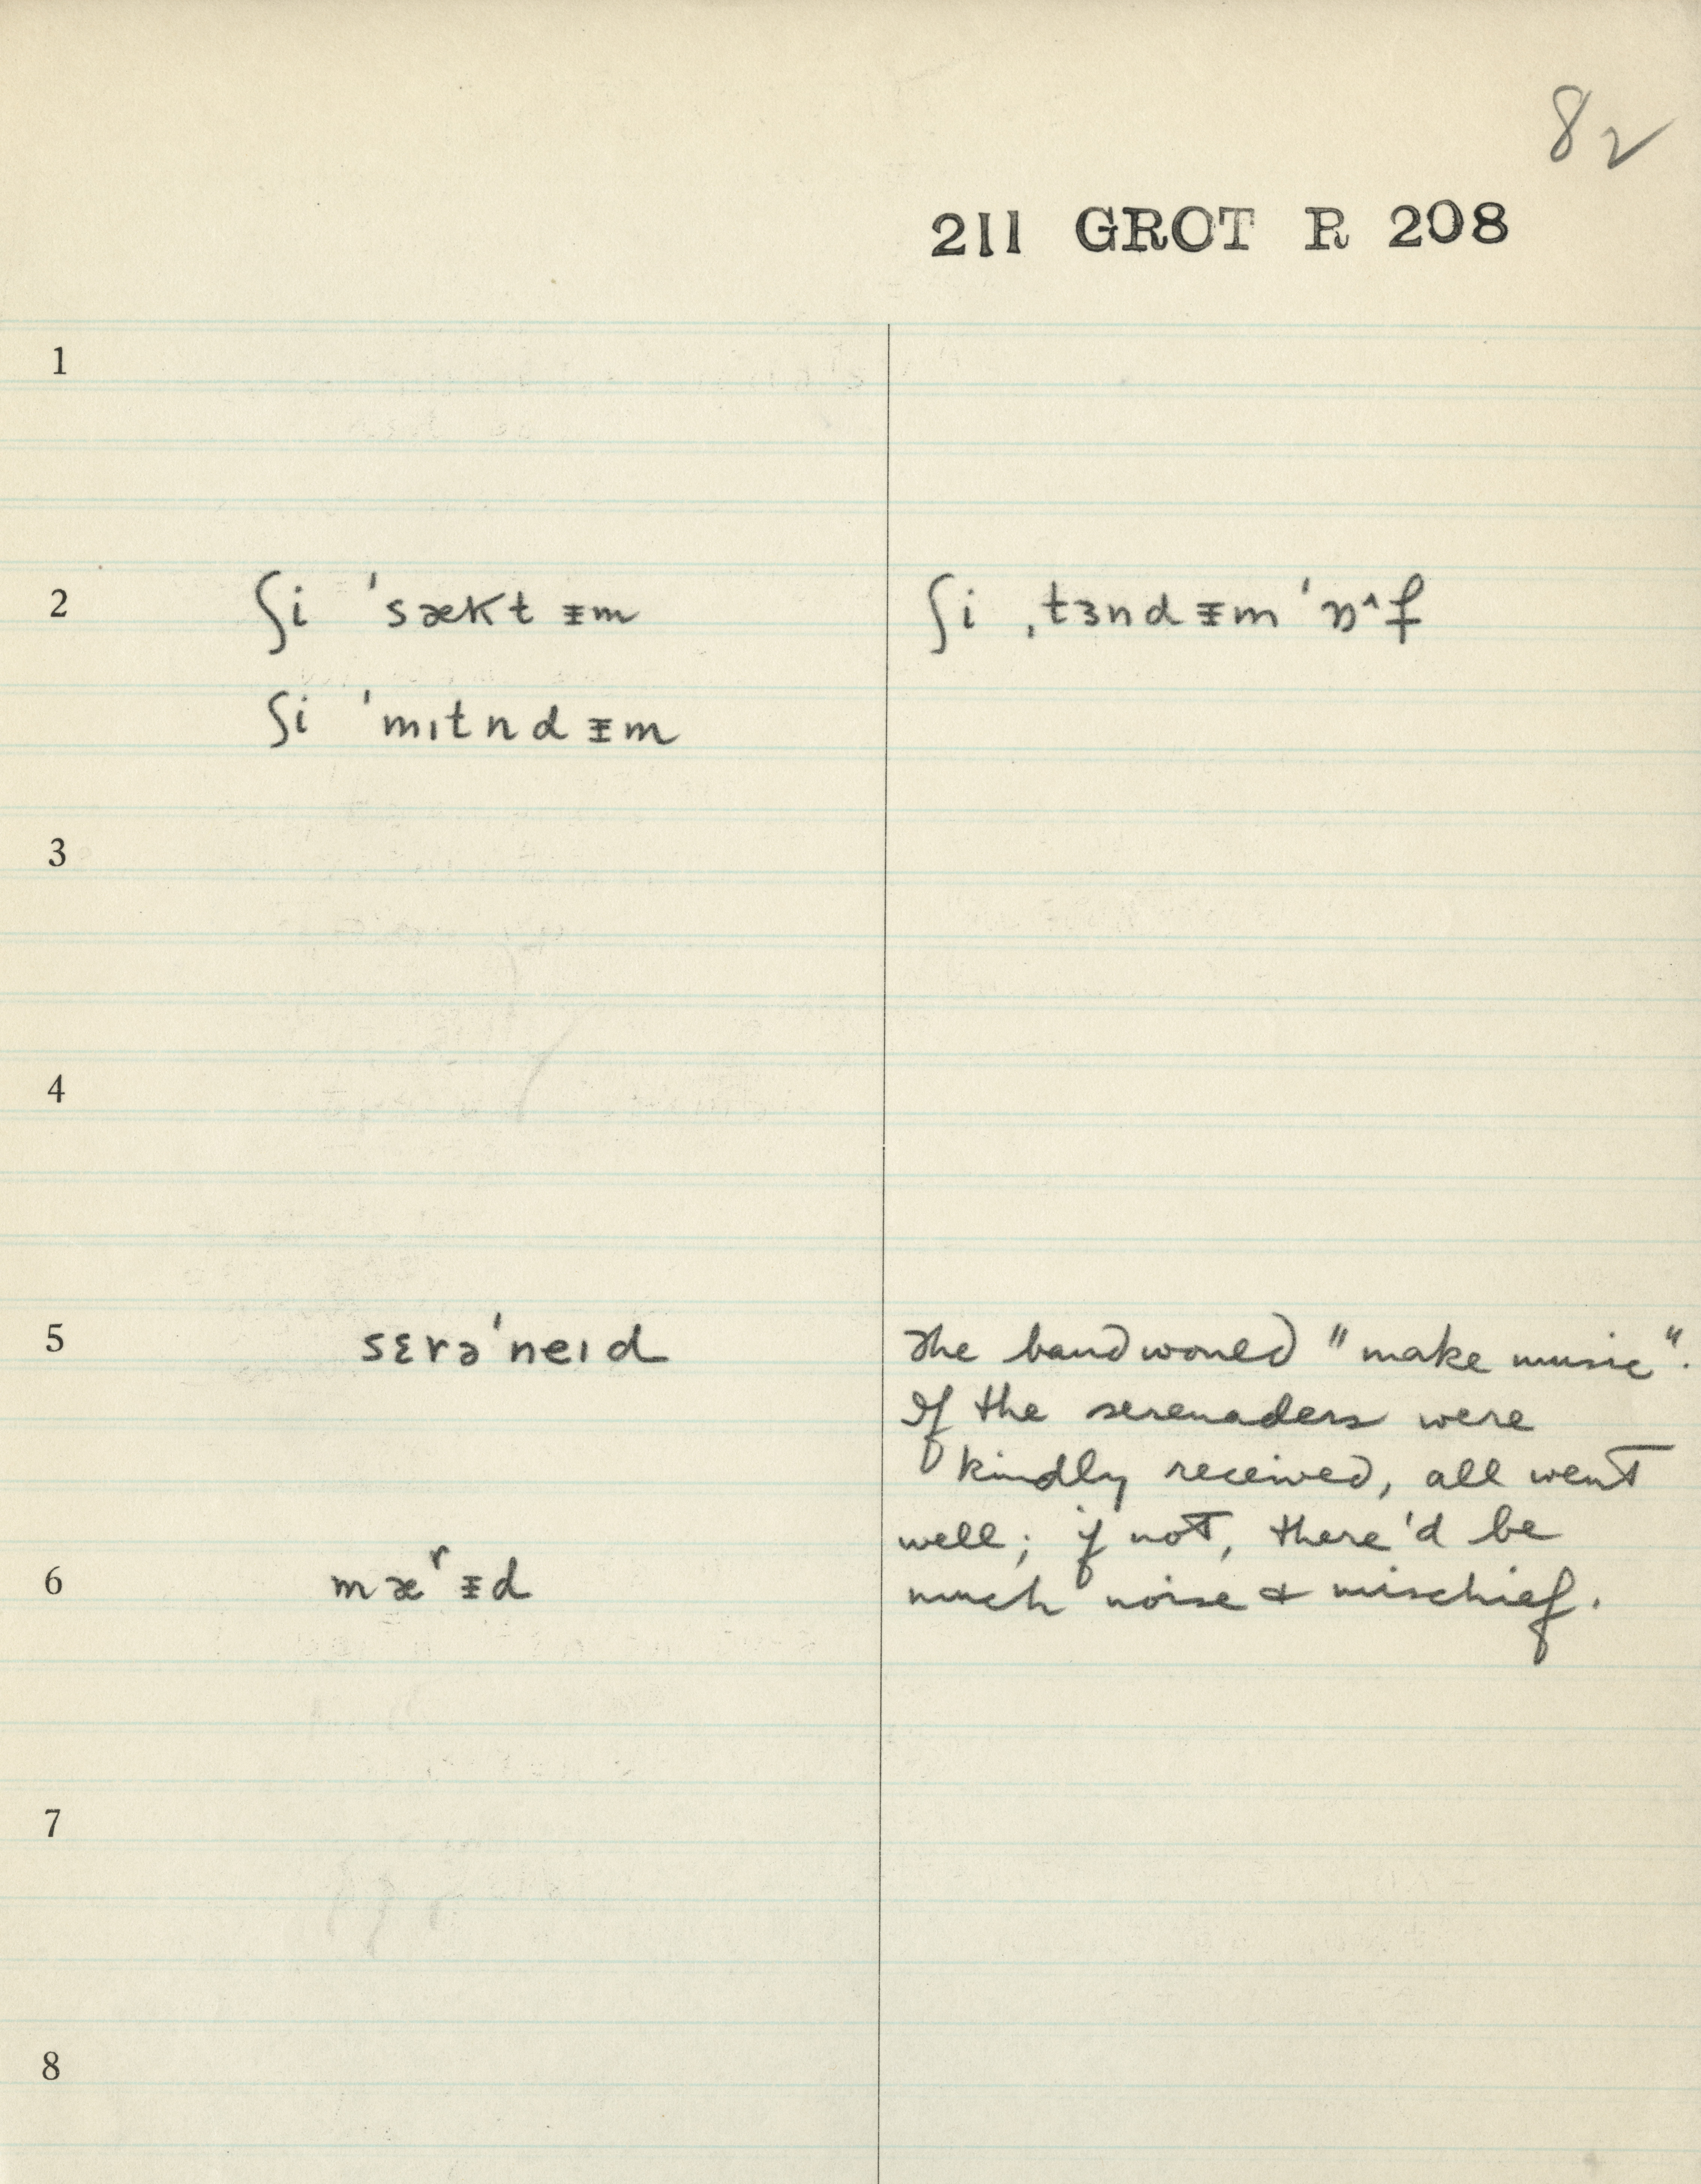 82
211 GROT R 208
1
2 ʃi ˈsækt ᵻm ʃi ˌtɜnd ᵻm ˈɒ^f
ʃi ˈmɪtnd ᵻm
3
4
5 sɛrəˈneɪd The band would "make music".
If the serenaders were
kindly received, all went
well; if not, there'd be
6 mæʳᵻd much noise & mischief.
7
8